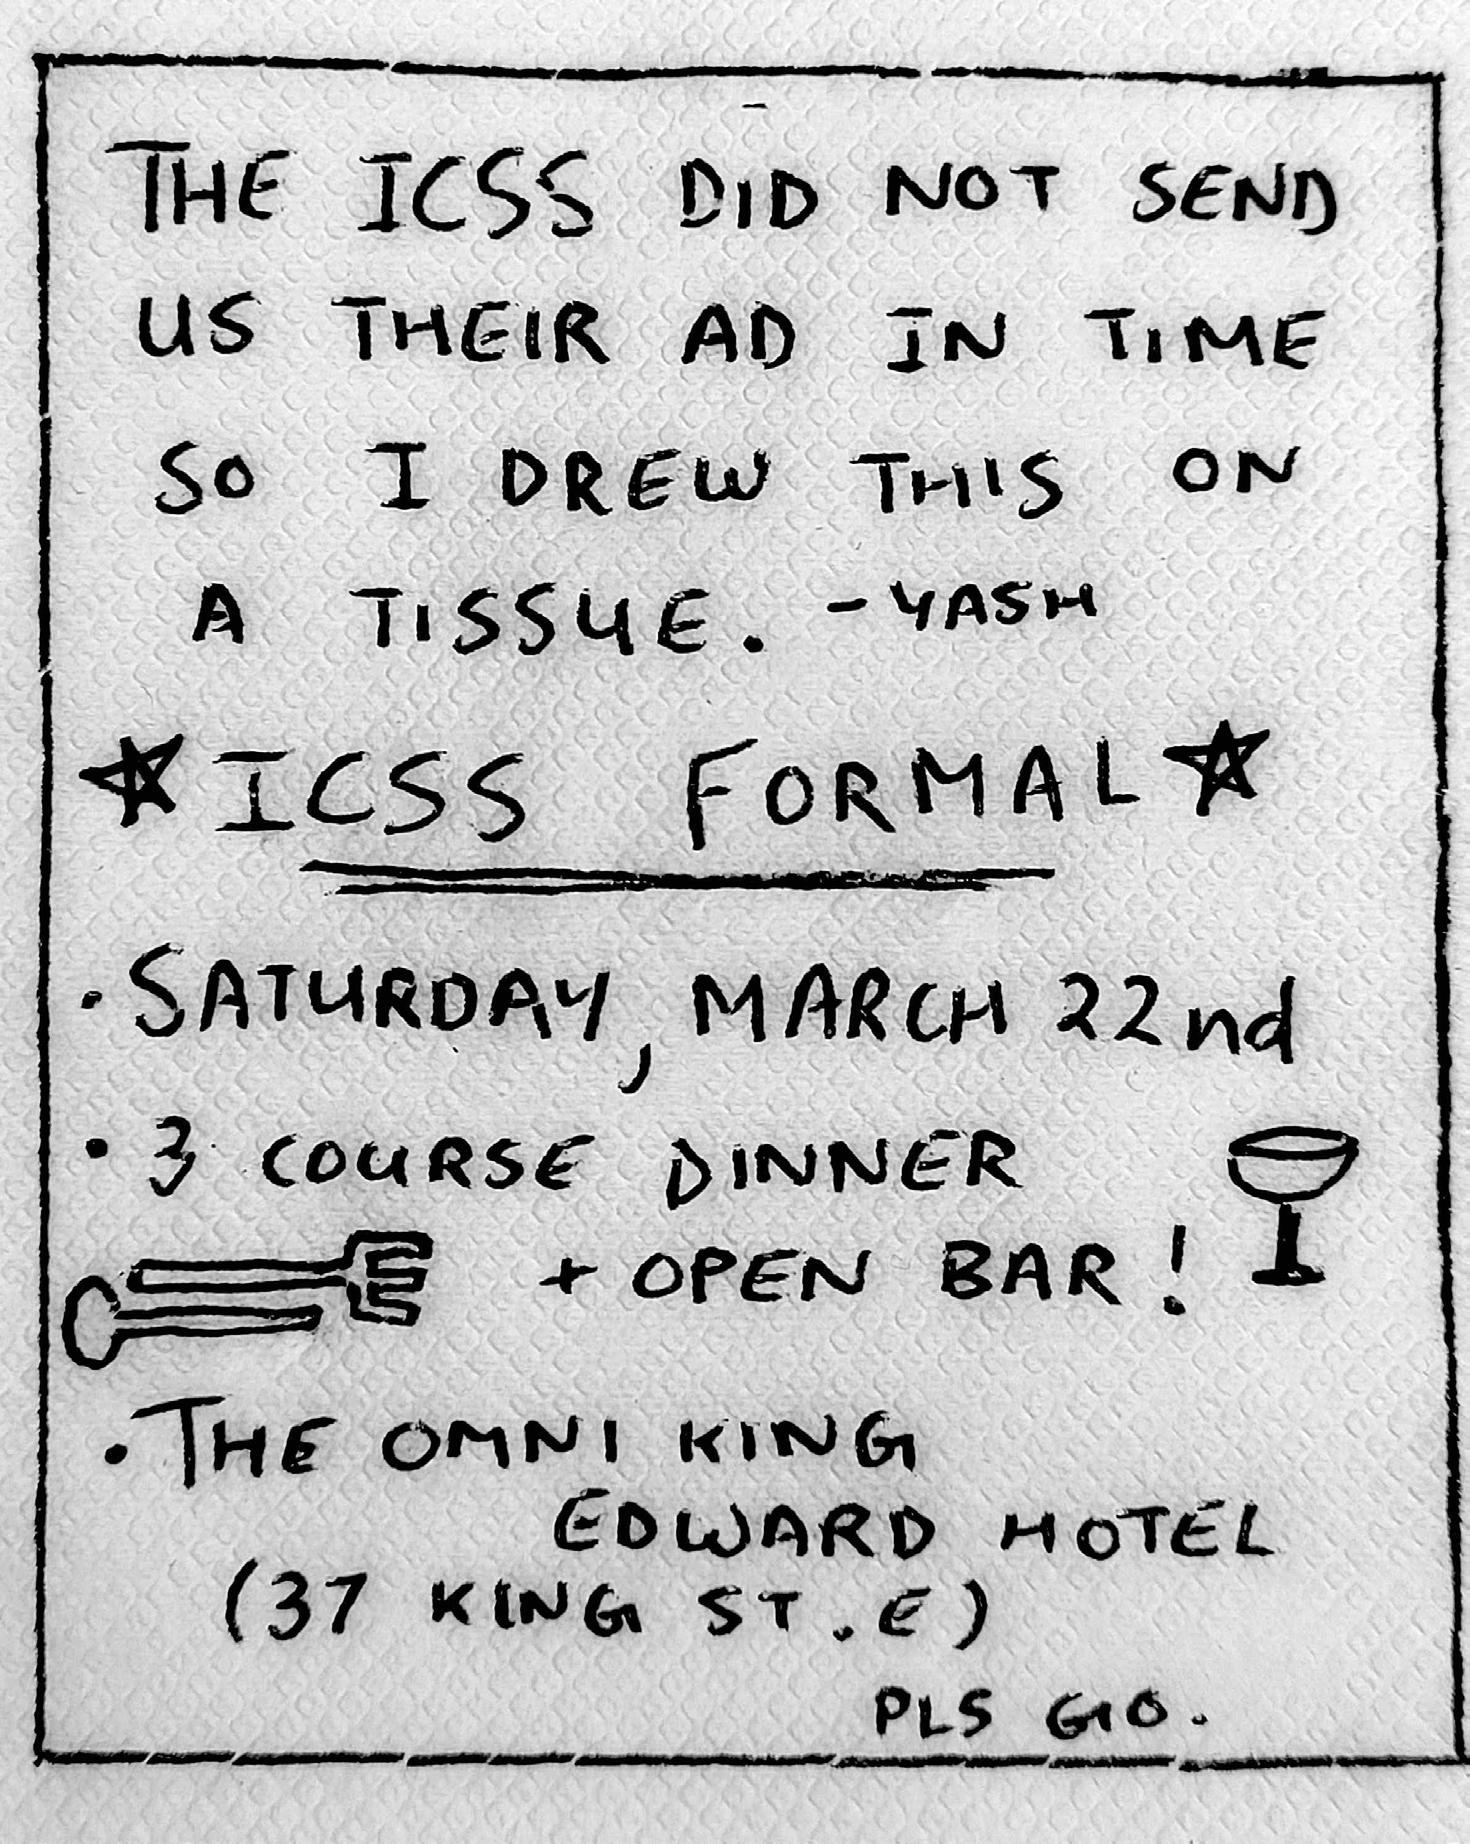 THE ICSS DID NOT SEND
US THEIR AD IN TIME
SO I DREW THIS ON
A TISSUE. -YASH
ICSS FORMAL
• SATURDAY, MARCH 22nd
• 3 COURSE DINNER
+ OPEN BAR!
• THE OMNI KING
EDWARD HOTEL
(37 KING ST. E)
PLS GO.